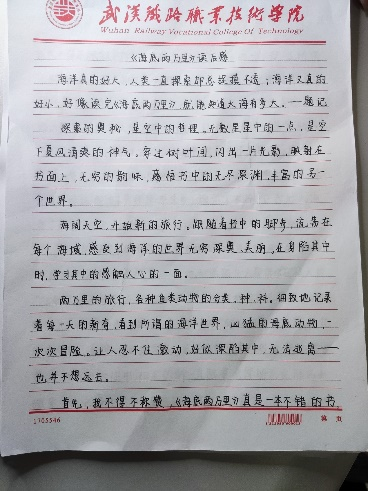 武汉铁路职业技术学院
Wuhan Railway Vocational College Of Technology
《海底两万里》读后感
海洋真的好大，人类一直探索却总摸摸不透；海洋又真的
好小，好像读完《海底两万里》就能知道大海有多大。——题记
探索的奥秘，星空中的哲理，无数星星中的一点，星空
下夏风清爽的神气，穿过树叶间，闪出一片光影，照射在
书面上，无穷的韵味，荡漾书中的无尽深渊，丰富的另一
个世界。
海阔天空，外推新的旅行。跟随着书中的脚步，流荡在
每个海域，感受到海洋的世界无穷深奥、美丽，在身临其中
时，学习其中的感触人心的一面。
两万里的旅行，各种鱼类动物的分类，种、科。细致地记录
着每一天的新奇，看到所谓的海洋世界，凶猛的海底动物，一
次次冒险。让人忍不住激动，好似深陷其中，无法逃离——
也并不想远去。
首先，我不得不称赞，《海底两万里》真是一本不错的书，
1705546
第 页